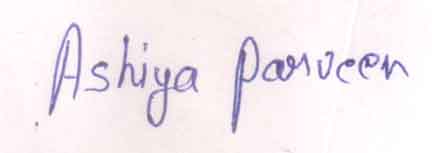 Ashiya Parveen